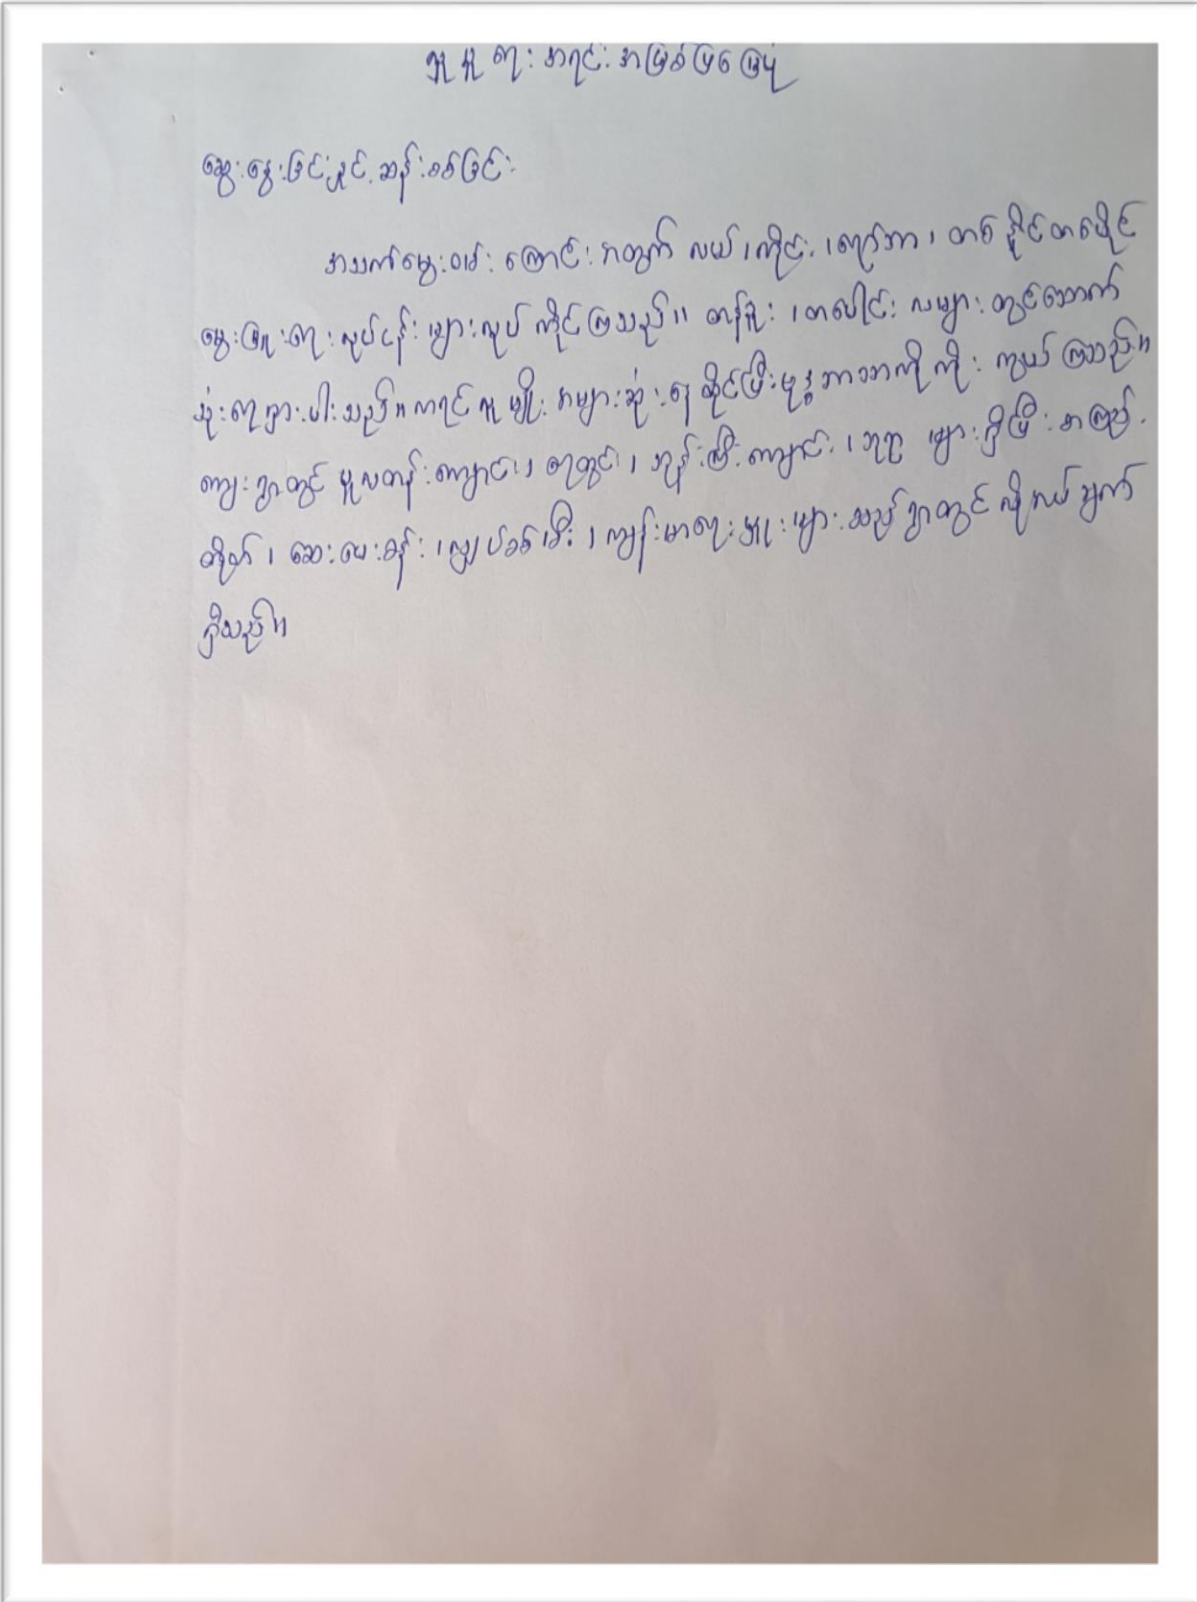 လူမှုရေး အရင်းအမြစ်ပြမြေပုံ
ဆွေးနွေးခြင်းနှင့် ဆန်းစစ်ခြင်း
အသက်မွေးဝမ်းကြောင်းအတွက် လယ်၊ ကိုင်း၊ ရော်ဘာ၊ တစ်နိုင်တစ်ပိုင်
မွေးမြူရေးလုပ်ငန်းများလုပ်ကိုင်ကြသည်။ တန်ခူး၊ တပေါင်းလများတွင်သောက်
သုံးရေရှားပါးသည်။ ကရင်လူမျိုးအများဆုံးနေထိုင်ပြီး ဗုဒ္ဓဘာသာကိုကိုးကွယ်ကြသည်။
ကျေးရွာတွင် မူလတန်းကျောင်း၊ ရေတွင်း၊ ဘုန်းကြီးကျောင်း၊ ဘုရားများရှိပြီး စာကြည့်
တိုက်၊ ဆေးပေးခန်း၊ လျှပ်စစ်မီး၊ ကျန်းမာရေးမှူးများသည်ရွာတွင်လိုအပ်ချက်
ရှိသည်။